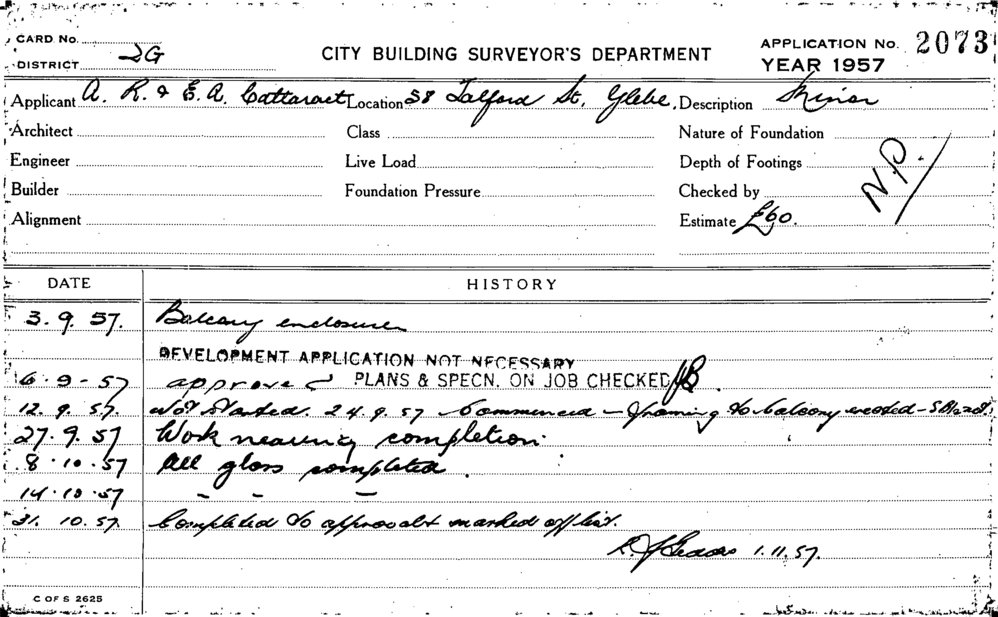 CARD No.
DISTRICT DG
CITY BUILDING SURVEYOR'S DEPARTMENT
APPLICATION No. 2073
YEAR 1957
Applicant A. R. & E. A. Cattaract Location 58 Talford St. Glebe. Description Minor
Architect Class Nature of Foundation
Engineer Live Load Depth of Footings
Builder Foundation Pressure Checked by
N.P.
Alignment Estimate £60.
DATE HISTORY
3. 9. 57. Balcony enclosure
DEVELOPMENT APPLICATION NOT NECESSARY
6-9-57 approved PLANS & SPECN. ON JOB CHECKED JB
12. 9. 57. Not started. 24.9.57 Commenced - framing to balcony erected -
27. 9. 57 Work nearing completion.
8. 10. 57 All glass completed.
14. 10. 57 - - -
31. 10. 57. Completed to approval & marked off list.
1.11.57.
C OF S 2625